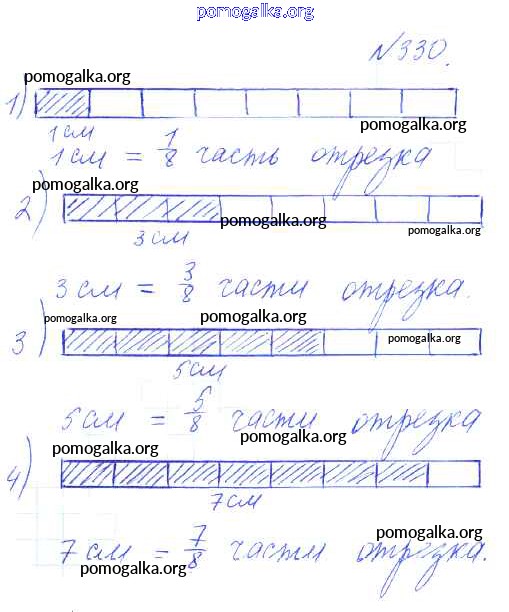 pomogalka.org
№330.
pomogalka.org
1)
pomogalka.org
1см
1см = 1/8 часть отрезка
pomogalka.org
2)
pomogalka.org
pomogalka.org
3см
3см = 3/8 части отрезка.
pomogalka.org
pomogalka.org
3)
pomogalka.org
5см
5см = 5/8 части отрезка
pomogalka.org
pomogalka.org
4)
7см
pomogalka.org
7см = 7/8 части отрезка.
pomogalka.org